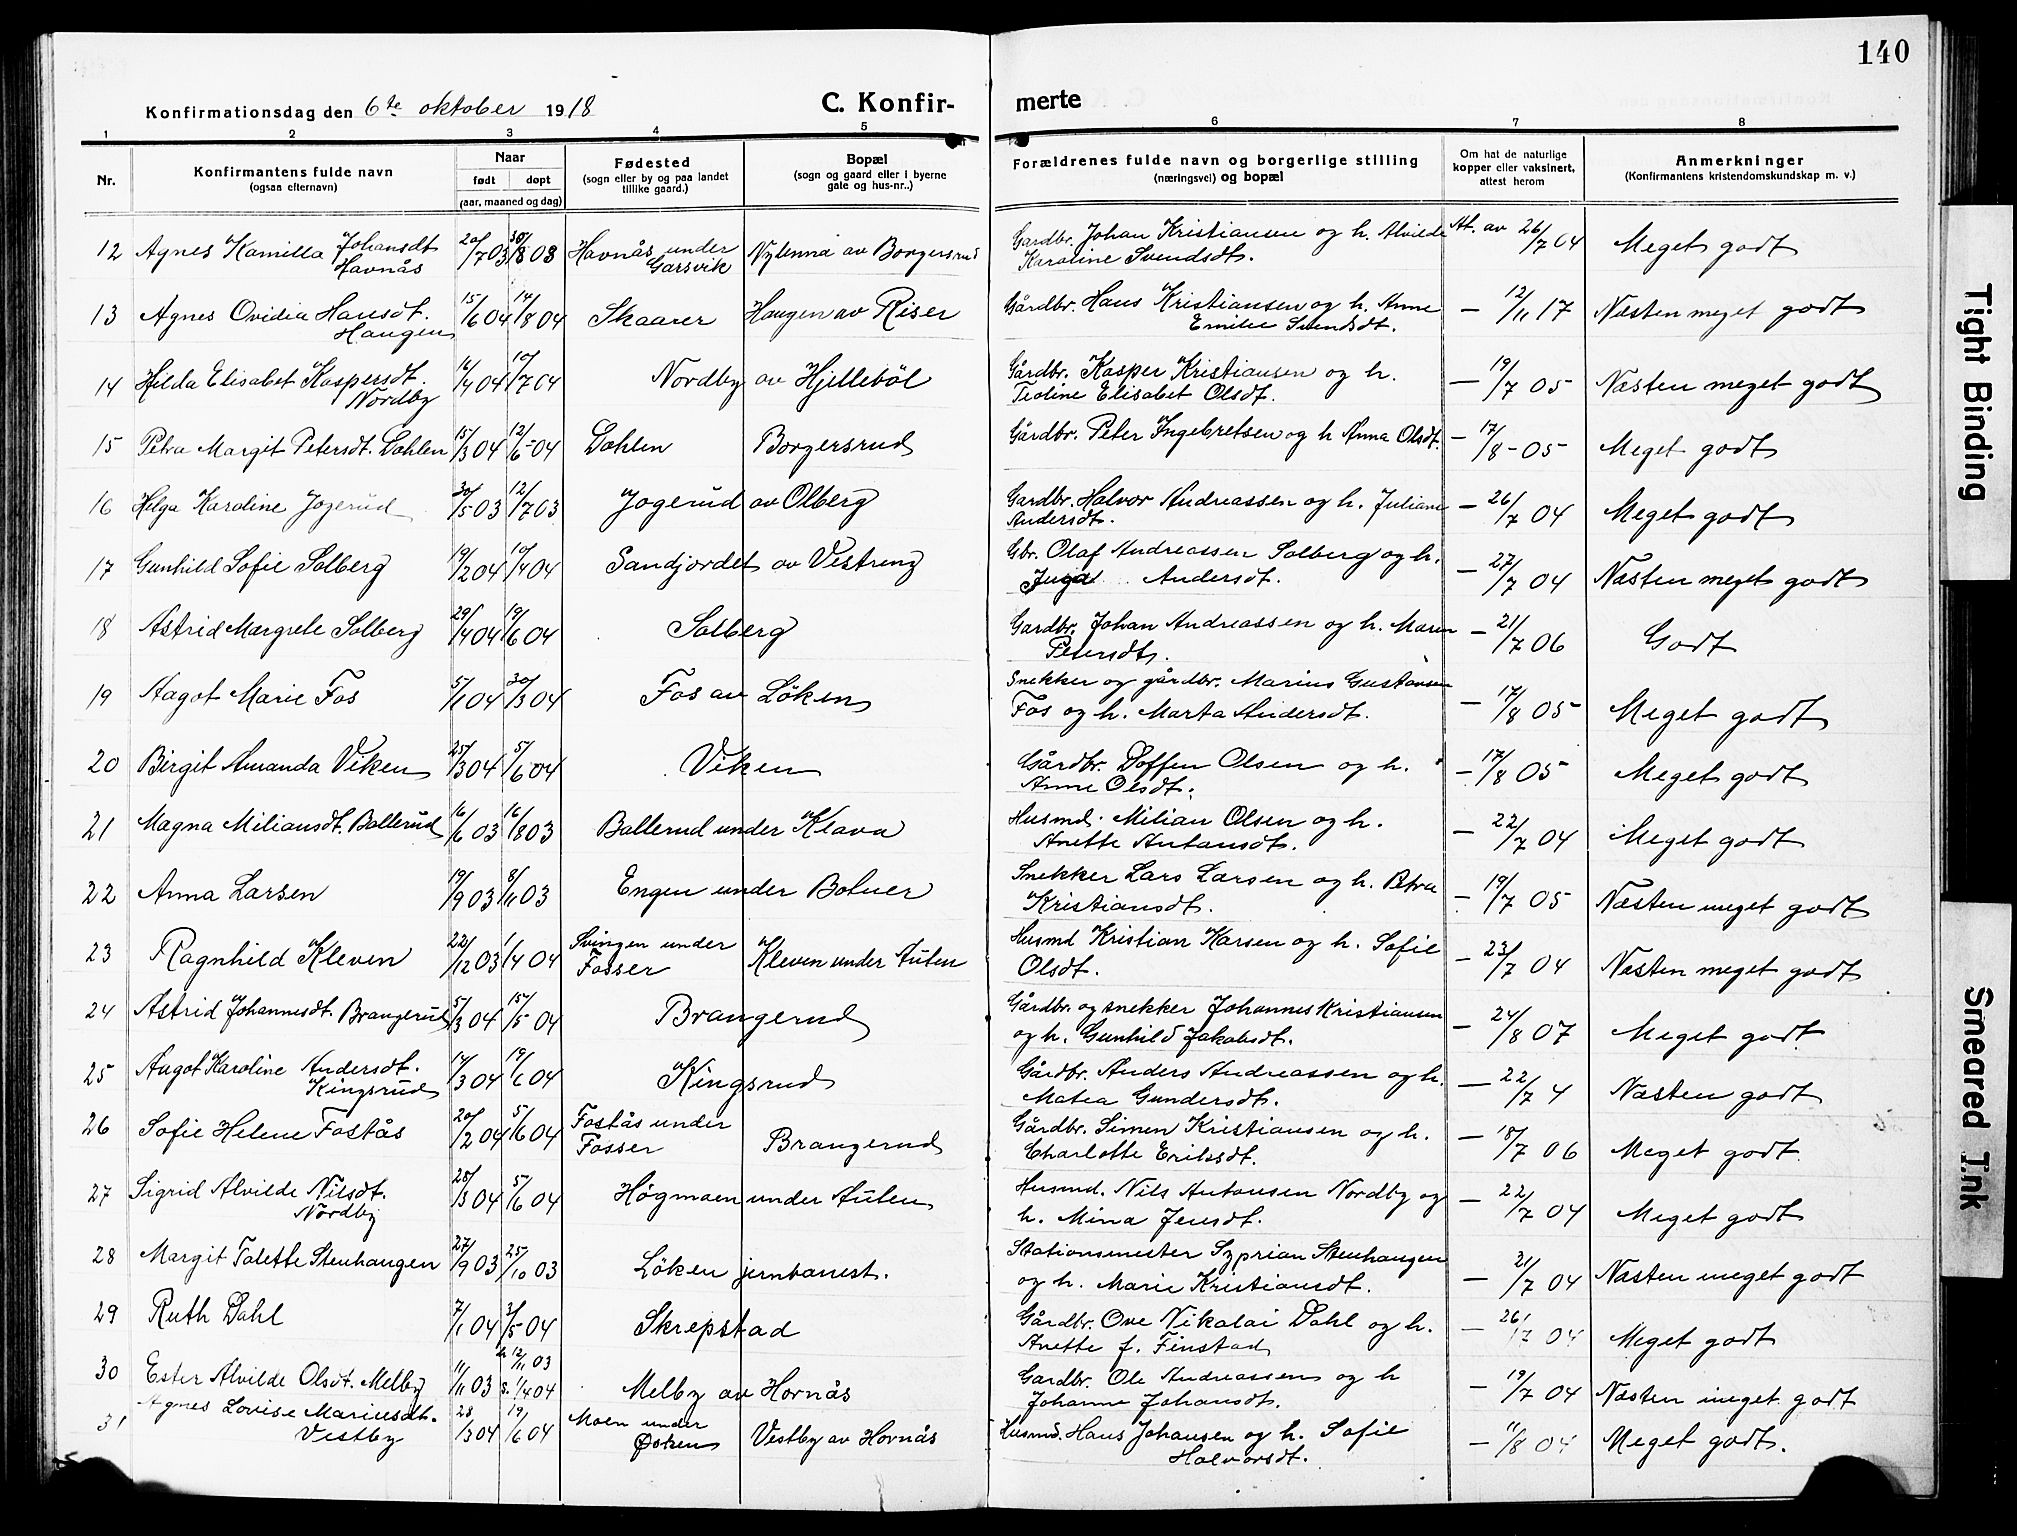 140
Konfirmationsdag den 6te oktober 1918
C. Konfir-
merte
1 2 3 4 5 6 7 8
Nr.
Konfirmantens fulde navn
(ogsaa efternavn)
Naar
født døpt
(aar, maaned og dag)
Fødested
(sogn eller by og paa landet
tillike gaard.)
Bopæl
(sogn og gaard eller i byerne
gate og hus-nr..)
Forældrenes fulde navn og borgerlige stilling
(næringsvei) og bopæl
Om hat de naturlige
kopper eller vaksinert,
attest herom
Anmerkninger
(Konfirmantens kristendomskundskap m. v.)
12 Agnes Kamilla Johansdt Havnås 20/7 03 30/8 03 Havnås under Garsvik Nylenna av Borgersrud Gardbr. Johan Kristiansen og h. Alvilde Karoline Svendsdt. At. av 26/7 04 Meget godt
13 Agnes Ovidia Hansdt. Haugen 15/6 04 14/8 04 Skaarer Haugen av Riser Gårdbr. Hans Kristiansen og h. Anne Emilie Svendsdt. — 12/11 17 Næsten meget godt
14 Hilda Elisabet Kaspersdt. Nordby 16/4 04 10/7 04 Nordby av Hjellebøl Gårdbr. Kasper Kristiansen og h. Teoline Elisabet Olsdt. — 19/7 05 Næsten meget godt
15 Petra Margit Petersdt. Dahlen 15/3 04 12/6 04 Dahlen Borgersrud Gårdbr. Peter Ingebretsen og h Anna Olsdt. — 17/8 05 Meget godt
16 Helga Karoline Jogerud 30/5 03 12/7 03 Jogerud av Olberg Gardbr. Halvor Andreassen og h. Juliane Andersdt. — 26/7 04 Meget godt
17 Gunhild Sofie Solberg 19/2 04 10/4 04 Sandjordet av Vestreng Gbr. Olaf Andreassen Solberg og h. Inga Andersdt. — 27/7 04 Næsten meget godt
18 Astrid Margrete Solberg 29/4 04 19/6 04 Solberg Gardbr. Johan Andreassen og h. Maren Petersdt. — 21/7 06 Godt
19 Aagot Marie Fos 5/1 04 30/3 04 Fos av Löken Snekker og gårdbr. Marius Gustavsen Fos og h. Marta Andersdt. — 17/8 05 Meget godt
20 Birgit Amanda Viken 25/3 04 5/6 04 Viken Gårdbr. Doffen Olsen og h. Anne Olsdt. — 17/8 05 Meget godt
21 Magna Miliansdt. Ballerud 16/6 03 16/8 03 Ballerud under Klava Husmd. Milian Olsen og h. Anette Antonsdt. — 22/7 04 Meget godt
22 Anna Larsen 19/9 03 8/11 03 Engen under Bolner Snekker Lars Larsen og h. Petra Kristiansdt. — 19/7 05 Næsten meget godt
23 Ragnhild Kleven 22/12 03 1/4 04 Svingen under Fosser Kleven under Auten Husmd Kristian Karsen og h. Sofie Olsdt. — 23/7 04 Næsten meget godt
24 Astrid Johannesdt. Brangerud 5/3 04 15/5 04 Brangerud Gårdbr. og snekker Johannes Kristiansen og h. Gunhild Jakobsdt. — 24/8 07 Meget godt
25 Aagot Karoline Andersdt. Kingsrud 17/3 04 19/6 04 Kingsrud Gårdbr. Anders Andreassen og h. Matea Gundersdt. — 22/7 4 Næsten godt
26 Sofie Helene Fostås 20/2 04 5/6 04 Fostås under Fosser Brangerud Gårdbr. Simen Kristiansen og h. Charlotte Eriksdt. — 18/7 06 Meget godt
27 Sigrid Alvilde Nilsdt. Nordby 25/3 04 5/6 04 Högmoen under Auten Husmd. Nils Antonsen Nordby og h. Mina Jensdt. — 22/7 04 Meget godt
28 Margit Talette Stenhaugen 27/9 03 25/10 03 Löken jernbanest. Stationsmester Syprian Stenhaugen og h. Marie Kristiansdt. — 21/7 04 Næsten meget godt
29 Ruth Dahl 7/1 04 3/5 04 Skrepstad Gårdbr. Ove Nikolai Dahl og h. Anette f. Finstad — 26/7 04 Meget godt
30 Ester Alvilde Olsdt. Melby 11/11 03 h. 12/11 03 s. 1/4 04 Melby av Hornås Gardbr. Ole Andreassen og h Johanne Johansdt. — 19/7 04 Næsten meget godt
31 Agnes Lovise Mariusdt. Vestby 28/3 04 19/6 04 Moen under Östzen Vestby av Hornås Husmd. Hans Johansen og h. Sofie Halvorsdt. — 11/8 04 Meget godt.
Tight Binding
Smeared Ink